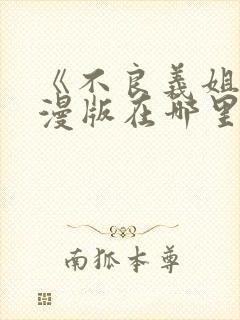 《不良义姐
漫版在哪里
南狐本尊